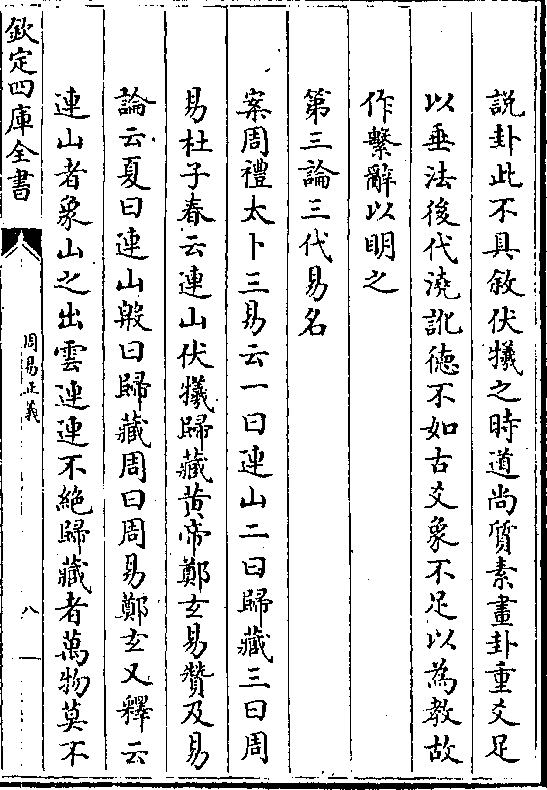 說卦此不具敘伏犧之時道尚質素畫卦重爻足
以垂法後代澆訛德不如古爻象不足以為教故
作繫辭以明之
第三論三代易名
案周禮太卜三易云一曰連山二曰歸藏三曰周
易杜子春云連山伏犧歸藏黃帝鄭玄易贊及易
論云夏曰連山殷曰歸藏周曰周易鄭玄又釋云
連山者象山之出雲連連不絶歸藏者萬物莫不
欽定四庫全書
周易正義
八